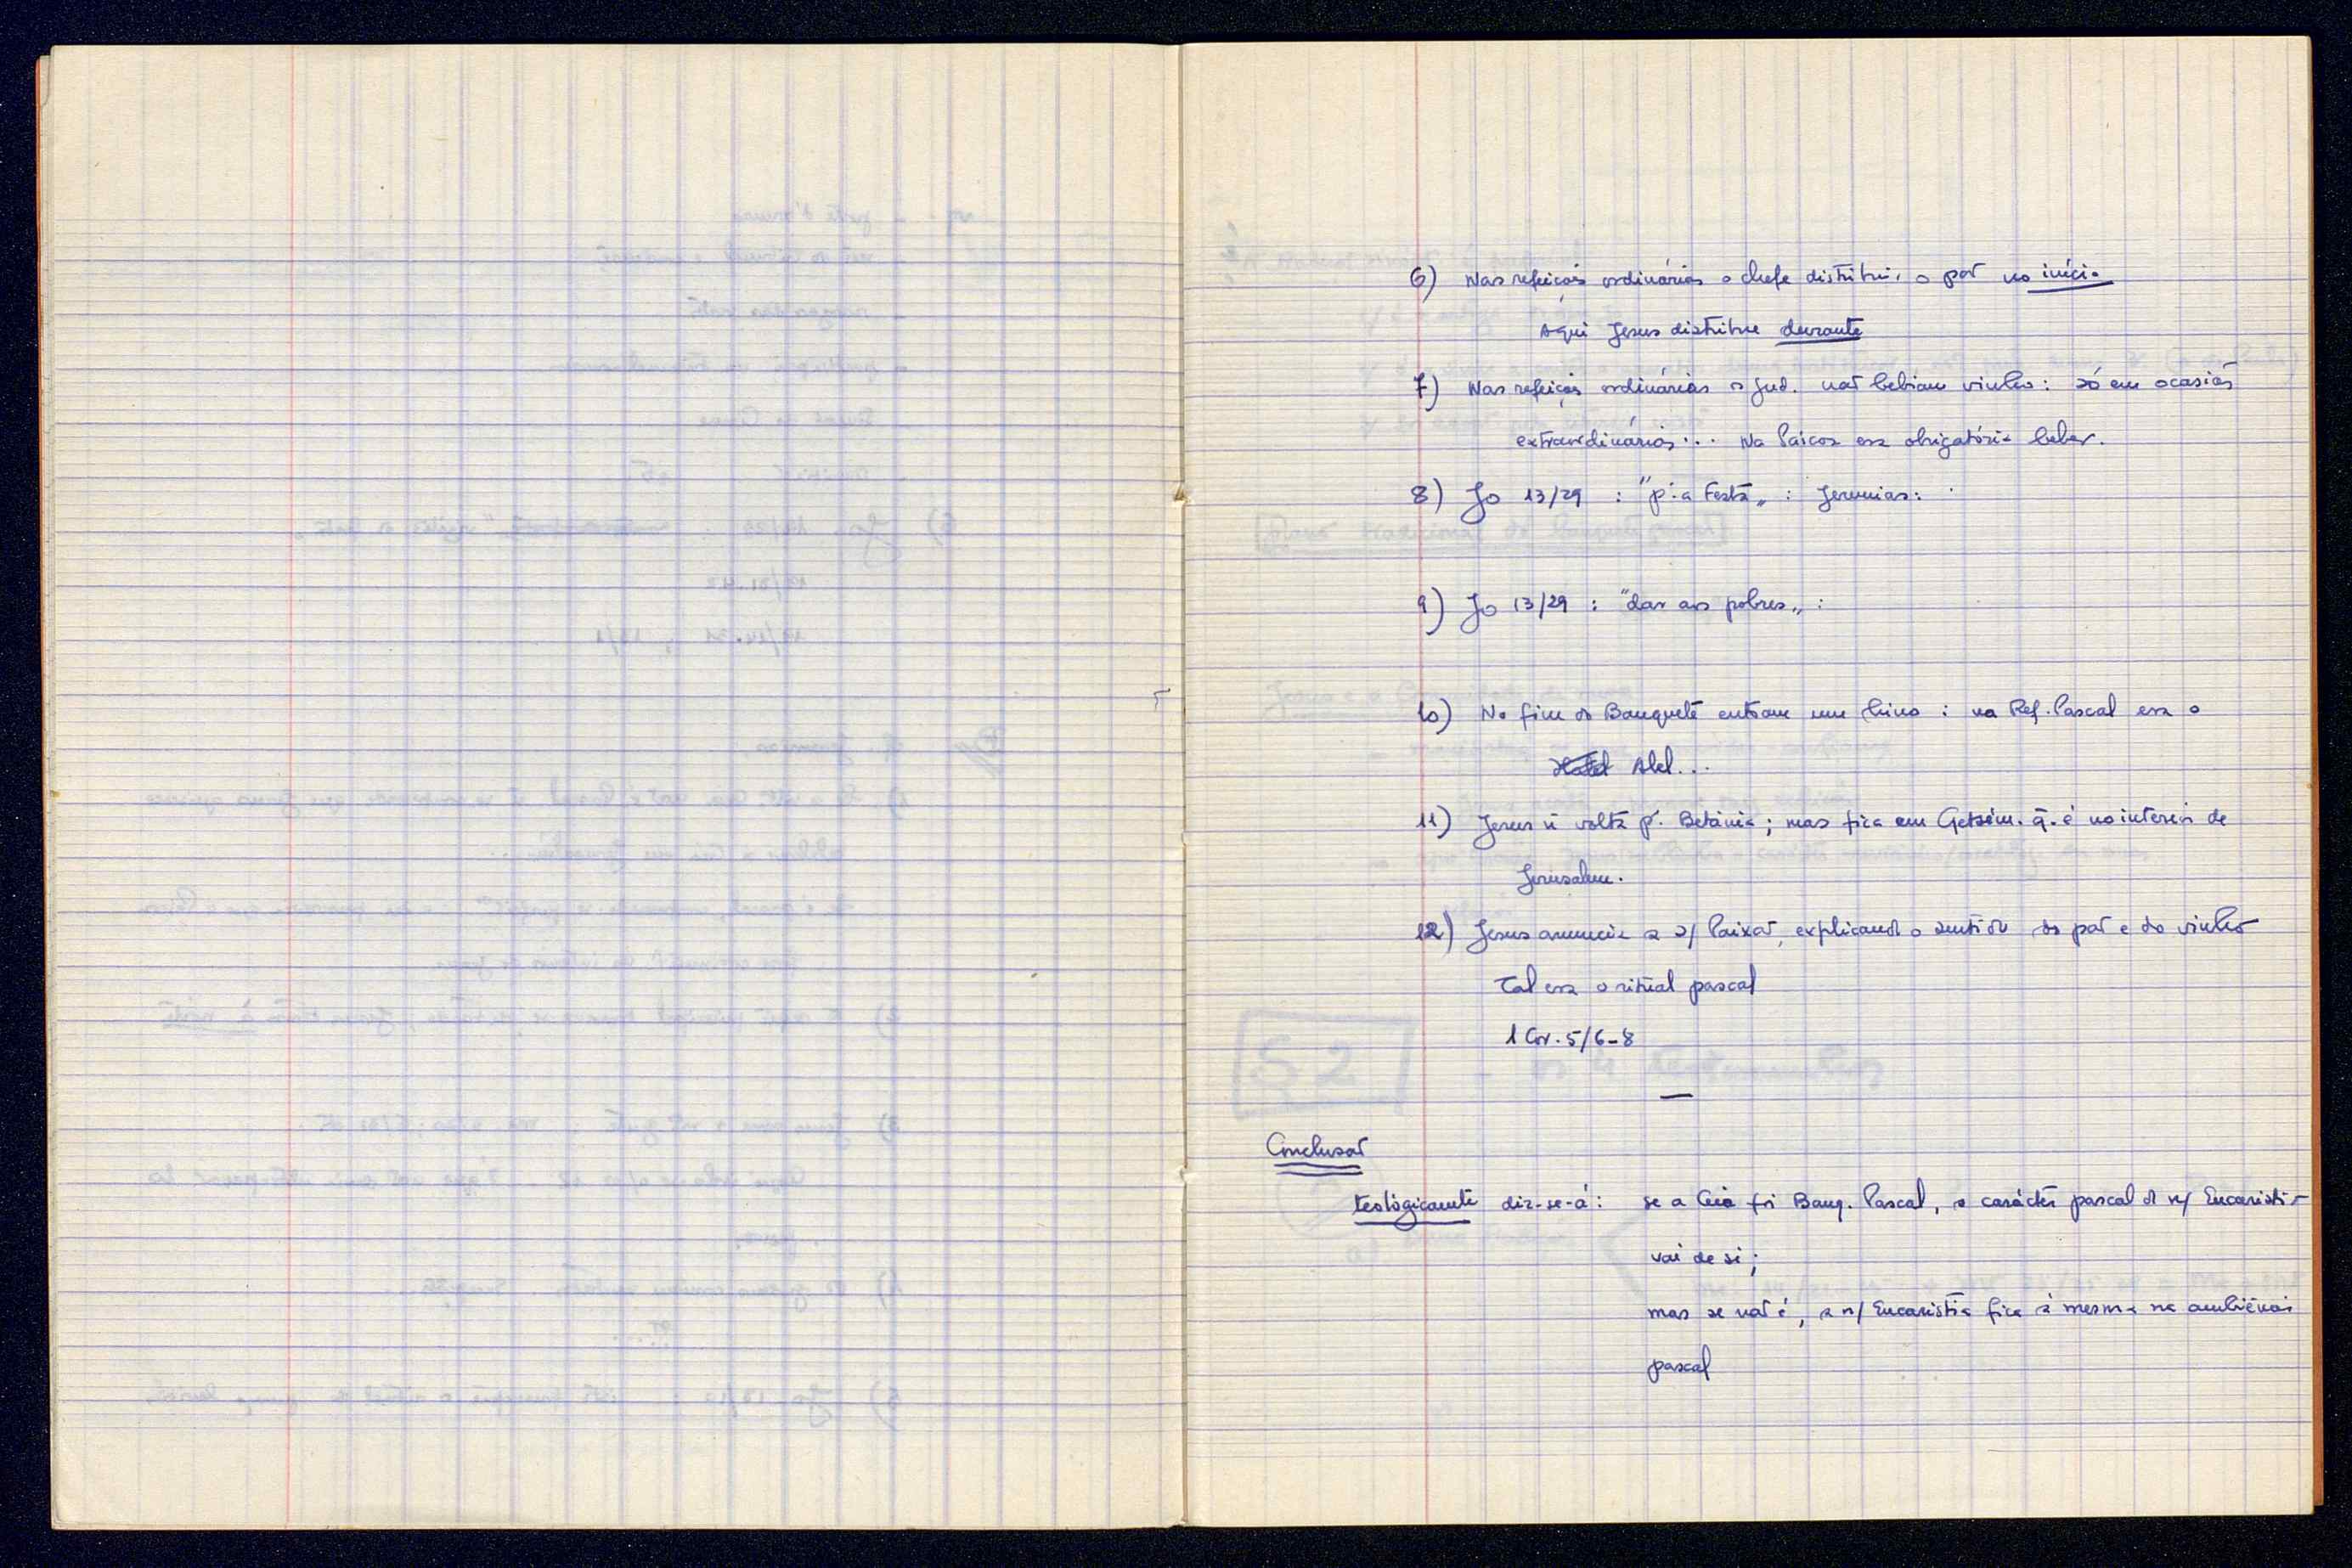 6) Nas refeições ordinárias o chefe distribui o pão no início
Aqui Jesus distribue durante
7) Nas refeições ordinárias o Jud. não bebiam vinho: só em ocasiões
extraordinárias... Na Páscoa era obrigatório beber.
8) Jo 13/29 : "p.ª a Festa„ : Jeremias:
9) Jo 13/29 : "dar aos pobres„ :
10) No fim do Banquete entoam um hino : na Ref. Pascal era o
Alel...
11) Jesus ñ volta p.ª Betânia; mas fica em Getsém. q. é no interior de
Jerusalem.
12) Jesus anuncia a s/ Paixão, explicando o sentido do pão e do vinho
Tal era o ritual pascal
1 Cor. 5/6-8
—
Conclusão
Teològicamente dir-se-á: se a Ceia foi Banq. Pascal, o carácter pascal da n/ Eucaristia
vai de si;
mas se não é, a n/ Eucaristia fica à mesma na ambiência
pascal